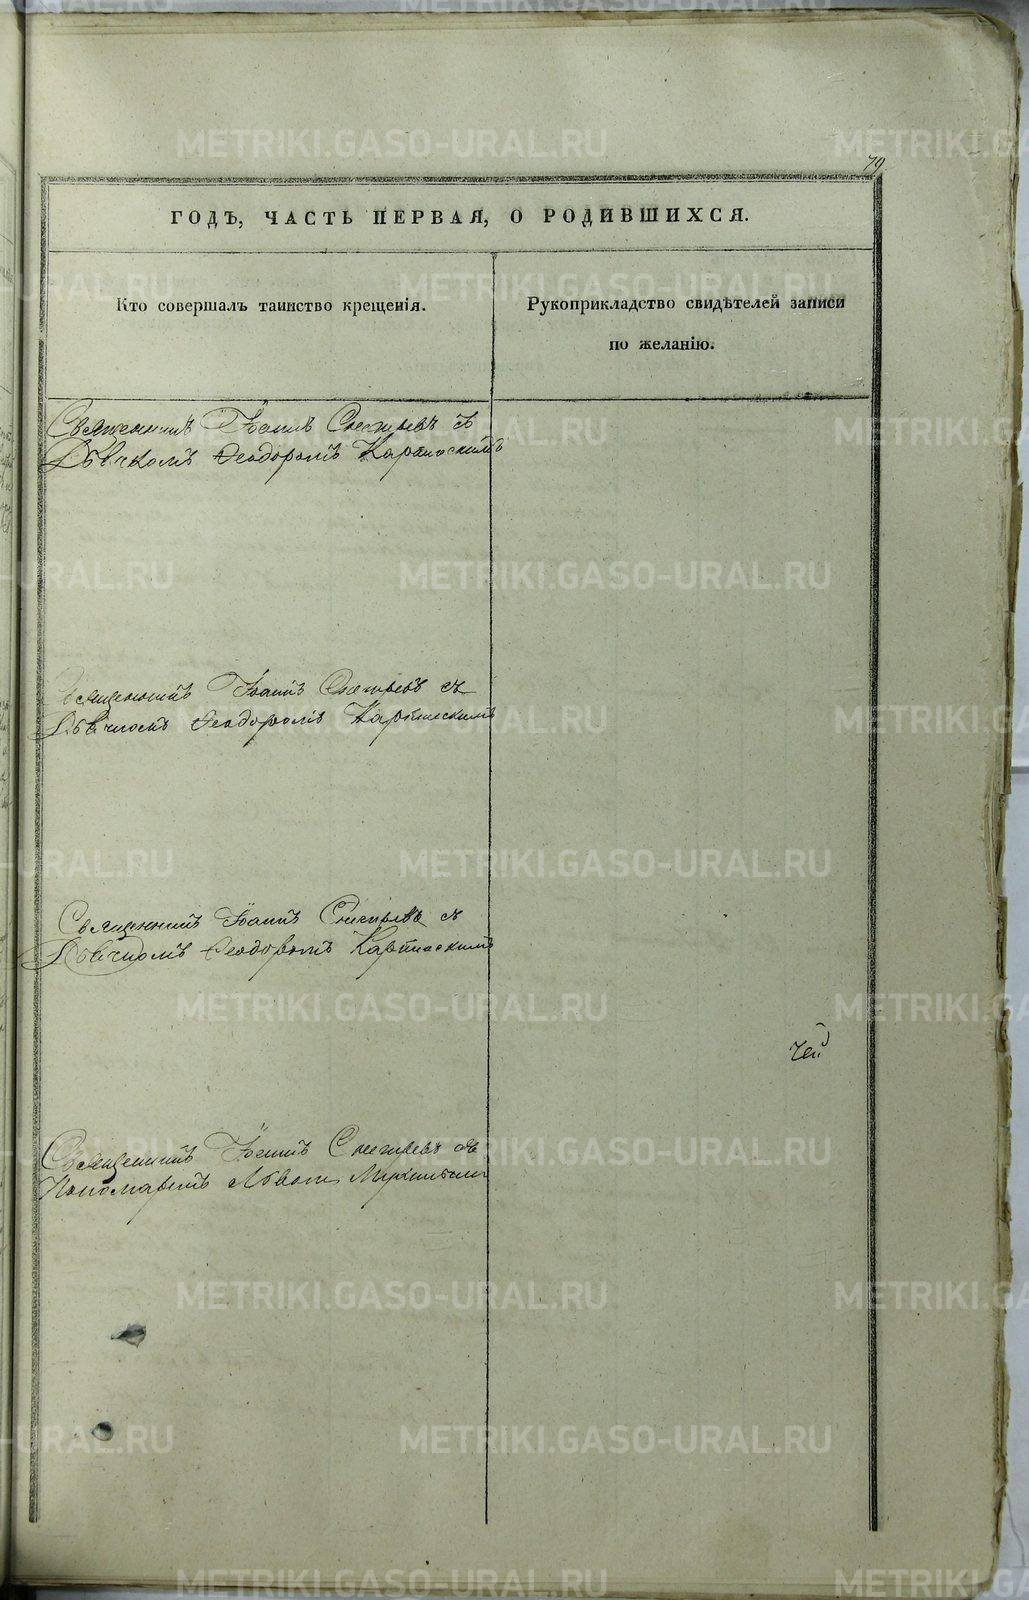 79
ГОДЪ, ЧАСТЬ ПЕРВАЯ, О РОДИВШИХСЯ.
Кто совершалъ таинство крещенія.
Рукоприкладство свидѣтелей записи
по желанію.
Священникъ Іоаннъ Снегиревъ съ
Дьячкомъ Ѳеодоромъ
Священникъ Іоаннъ Снегиревъ съ
Дьячкомъ Ѳеодоромъ
Священникъ Іоаннъ Снегиревъ съ
Дьячкомъ Ѳеодоромъ
чей
Священникъ Іоаннъ Снегиревъ съ
Пономаремъ
METRIKI.GASO-URAL.RU